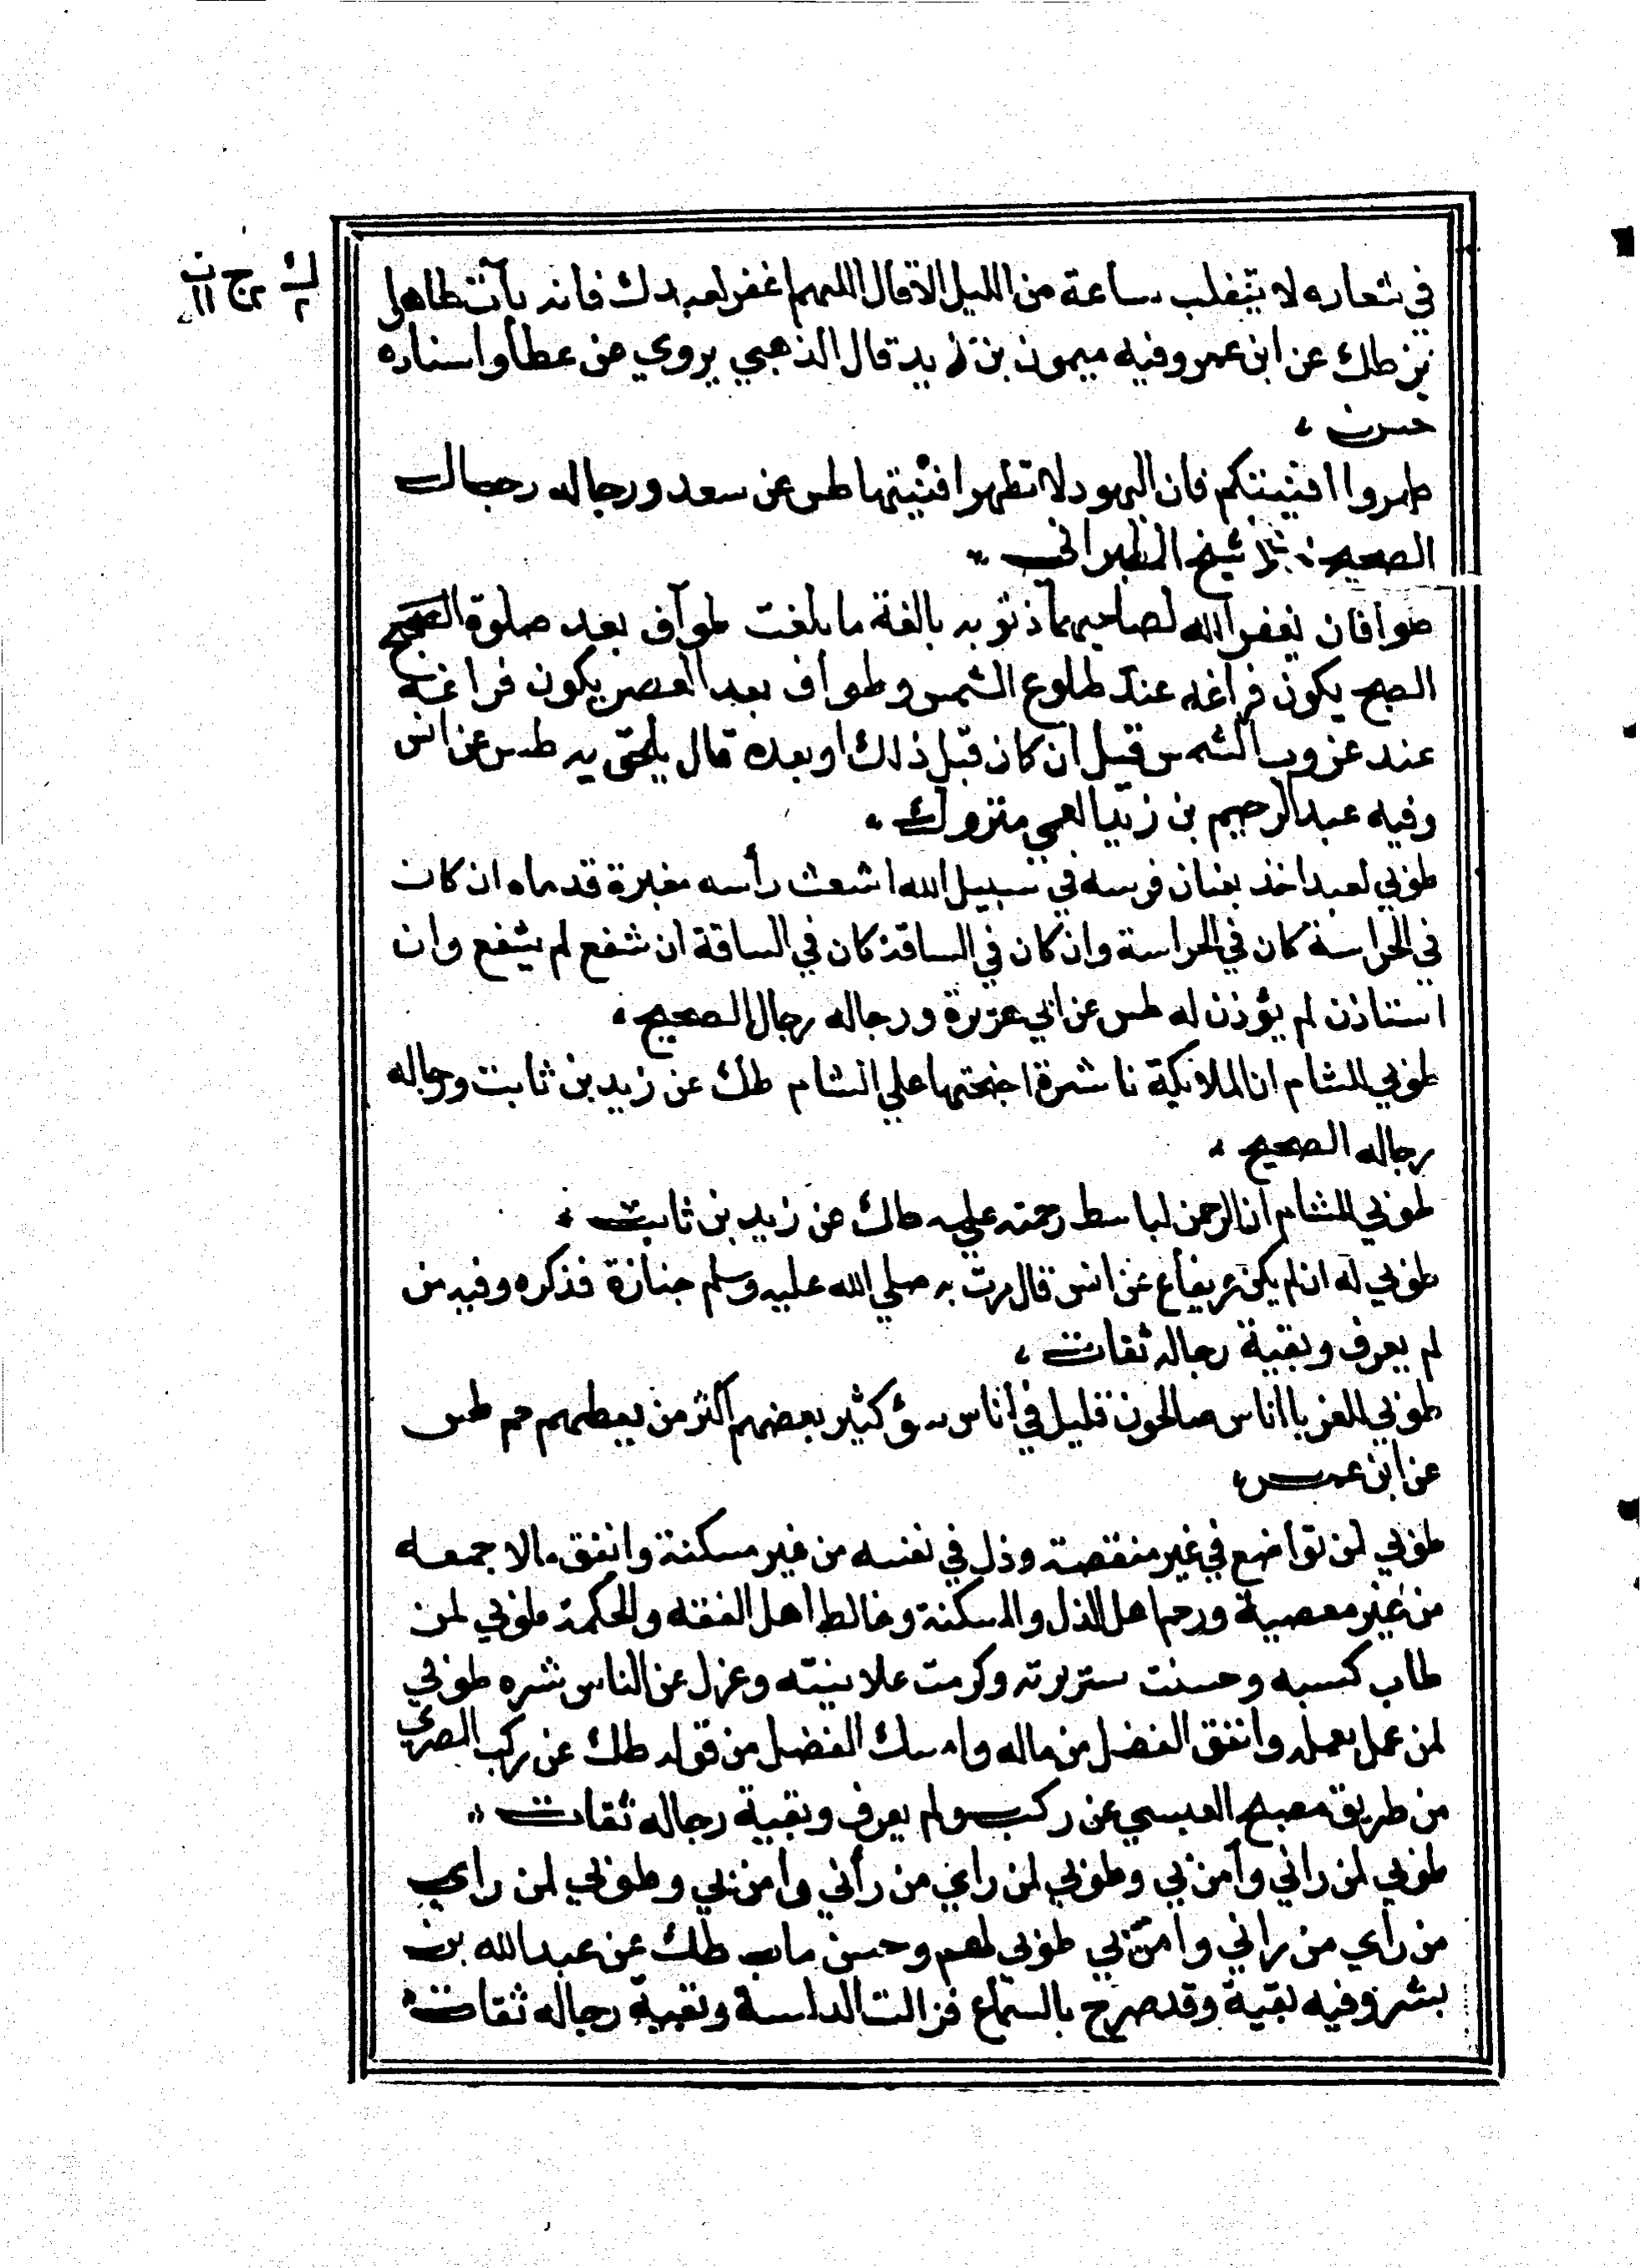 في شعاره لا يتقلب ساعة من الليل الا قال اللهم اغفر لعبدك فانه بات طاهرا
بز طك عن ابن عمر وفيه ميمون بن زيد قال الذهبي يروي عن عطا واسناده
حسن
طهروا افنيتكم فان اليهود لا تطهر افنيتها طس عن سعد ورجاله رجال
الصحيح شيخ الطبراني
طوافان يغفر الله لصاحبهما ذنوبه بالغة ما بلغت طواف بعد صلوة
الصبح يكون فراغه عند طلوع الشمس وطواف بعد العصر يكون فراغه
عند غروب الشمس قيل ان كان قبل ذلك او بعده قال يلحق به طس عن انس
وفيه عبد الرحيم بن زيد العمي متروك
طوبي لعبد اخذ بعنان فرسه في سبيل الله اشعث رأسه مغبرة قدماه ان كان
في الحراسة كان في الحراسة وان كان في الساقة كان في الساقة ان شفع لم يشفع وان
استاذن لم يؤذن له طس عن ابي هريرة ورجاله رجال الصحيح
طوبي للشام ان الملائكة ناشرة اجنحتها علي الشام طك عن زيد بن ثابت ورجاله
رجاله الصحيح
طوبي للشام ان الرحمن لباسط رحمته عليه طك عن زيد بن ثابت
طوبي له ان لم يكن عريفا ع عن انس قال مرت به صلي الله عليه وسلم جنازة فذكره وفيه من
لم يعرف وبقية رجاله ثقات
طوبي للغربا اناس صالحون قليل في أناس سؤ كثير بعضهم اكثر من يعطيهم حم طس
عن ابن عمر
طوبي لمن تواضع في غير منقصة وذل في نفسه من غير مسكنة وانفق مالا جمعه
من غير معصية ورحم اهل الذل والمسكنة وخالط اهل الفقه والحكمة طوبي لمن
طاب كسبه وحسنت سريرته وكرمت علانيته وعزل عن الناس شره طوبي
لمن عمل بعمله وانفق الفضل من ماله وامسك الفضل من قوله طك عن ركب المصري
من طريق مصبح العبسي عن ركب ولم يعرف وبقية رجاله ثقات
طوبي لمن راني وآمن بي وطوبي لمن راي من رأني وامن بي وطوبي لمن راي
من راي من راني وامن بي طوبي لهم وحسن ماب طك عن عبد الله بن
بشر وفيه بقية وقد صرح بالسماع فزالت الدلسة وبقية رجاله ثقات